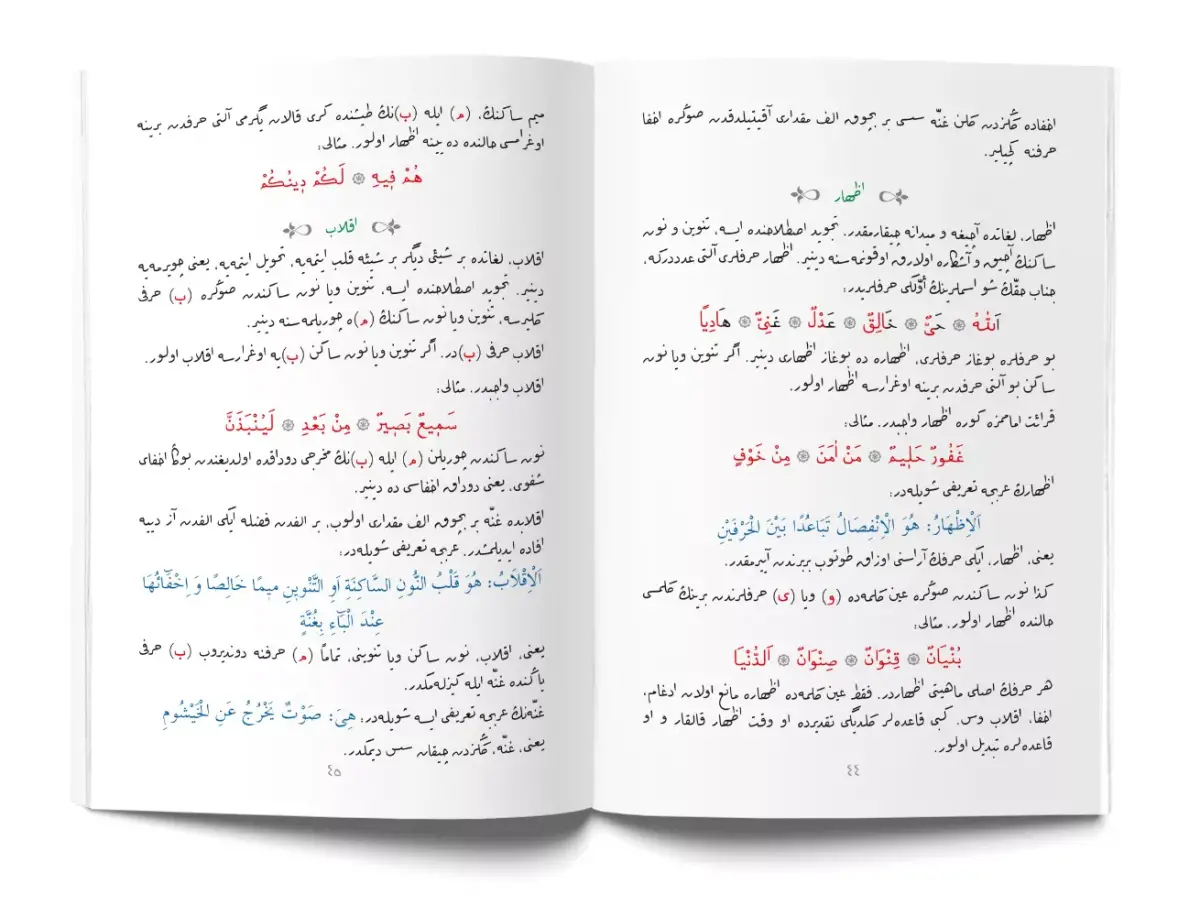 اخفاده گڭزدن گلن غنّه سسی بر بچوق الف مقداری آقیتیلدقدن صوڭره اخفا
حرفنه گچیلیر.
اظهار
اظهار، لغاتده آچیغه و میدانه چیقارمقدر. تجوید اصطلاحنده ایسه، تنوین و نون
ساكنڭ آچیق و آشكاره اولارق اوقونمه سنه دینیر. اظهار حرفلری آلتی عدددركه،
جناب حقّڭ شو اسملرینڭ أوّلكی حرفلریدر:
اَللهُ ۞ حَیٌّ ۞ خَالِقٌ ۞ عَدْلٌ ۞ غَنِیٌّ ۞ هَادِیًا
بو حرفلره بوغاز حرفلری، اظهاره ده بوغاز اظهاری دینیر. اگر تنوین ویا نون
ساكن بو آلتی حرفدن برینه اوغرارسه اظهار اولور.
قرائت اماممزه كوره اظهار واجبدر. مثالی:
غَفُورٌ حَلِیمٌ ۞ مَنْ اٰمَنَ ۞ مِنْ خَوْفٍ
اظهارڭ عربجه تعریفی شویله در:
اَلْاِظْهَارُ: هُوَ الْاِنْفِصَالُ تَبَاعُدًا بَیْنَ الْحَرْفَیْنِ
یعنی، اظهار، ایكی حرفڭ آراسنی اوزاق طوتوب بربرندن آییرمقدر.
كذا نون ساكندن صوڭره عین كلمه ده (و) ویا (ی) حرفلرندن برینڭ گلمسی
حالنده اظهار اولور. مثالی:
بُنْیَانٌ ۞ قِنْوَانٌ ۞ صِنْوَانٌ ۞ اَلدُّنْیَا
هر حرفڭ اصلی ماهیتی اظهاردر. فقط عین كلمه ده اظهاره مانع اولان ادغام،
اخفا، اقلاب وس. كبی قاعده لر گلدیگی تقدیرده او وقت اظهار قالقار و او
قاعده لره تبدیل اولور.
٤٤
میم ساكنڭ، (م) ایله (ب)نڭ طیشنده گری قالان یگرمی آلتی حرفدن برینه
اوغرامسی حالنده ده یینه اظهار اولور. مثالی:
هُمْ فِیهِ ۞ لَكُمْ دِینُكُمْ
اقلاب
اقلاب، لغاتده بر شیئی دیگر بر شیئه قلب ایتمه یه، تحویل ایتمه یه، یعنی چویرمه یه
دینیر. تجوید اصطلاحنده ایسه، تنوین ویا نون ساكندن صوڭره (ب) حرفی
گلیرسه، تنوین ویا نون ساكنڭ (م)ه چوریلمه سنه دینیر.
اقلاب حرفی (ب)در. اگر تنوین ویا نون ساكن (ب)یه اوغرارسه اقلاب اولور.
اقلاب واجبدر. مثالی:
سَمِیعٌ بَصِیرٌ ۞ مِنْ بَعْدِ ۞ لَیُنْبَذَنَّ
نون ساكندن چوریلن (م) ایله (ب)نڭ مخرجی دوداقده اولدیغندن بوڭا اخفای
شفوی، یعنی دوداق اخفاسی ده دینیر.
اقلابده غنّه بر بچوق الف مقداری اولوب، بر الفدن فضله ایكی الفدن آز دییه
افاده ایدیلمشدر. عربجه تعریفی شویله در:
اَلْاِقْلَابُ: هُوَ قَلْبُ النُّونِ السَّاكِنَةِ اَوِ التَّنْوِینِ مِیمًا خَالِصًا وَ اِخْفَٓائُهَا
عِنْدَ الْبَٓاءِ بِغُنَّةٍ
یعنی، اقلاب، نون ساكن ویا تنوینی، تمامًا (م) حرفنه دوندیروب (ب) حرفی
یاننده غنّه ایله گیزله مكدر.
غنّه نڭ عربجه تعریفی ایسه شویله در: هِیَ: صَوْتٌ یَخْرُجُ عَنِ الْخَیْشُومِ
یعنی، غنّه، گڭزدن چیقان سس دیمكدر.
٤٥